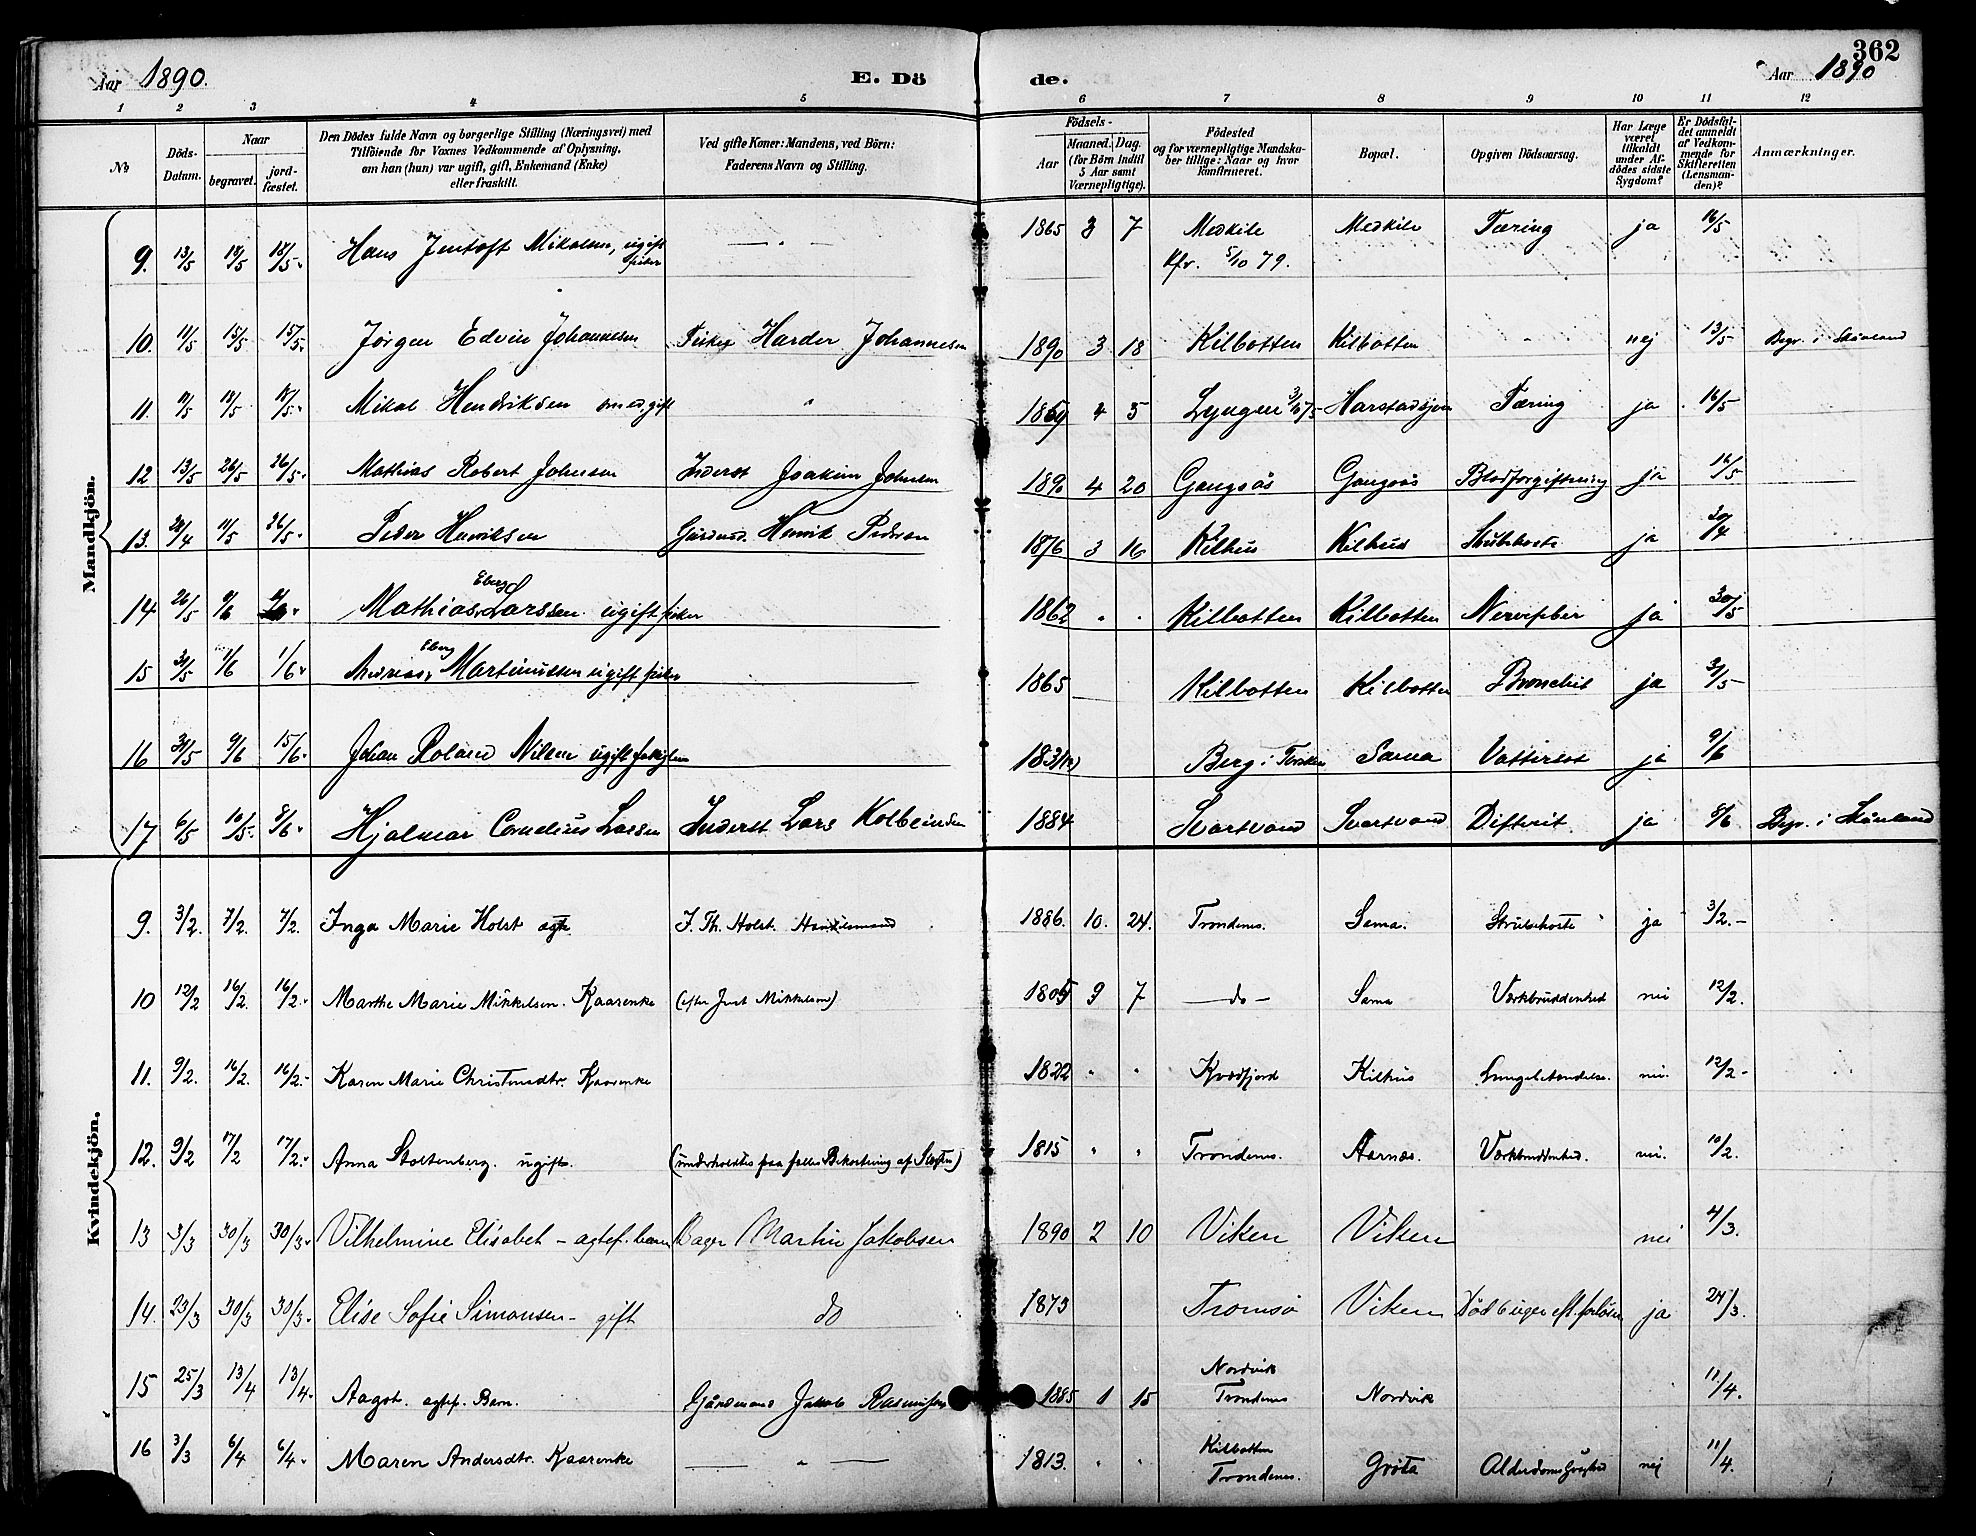 362
Aar 1890. E. Dö de. Aar 1890
1 2 3 4 5 6 7 8 9 10 11 12
No
Döds-Datum.
Naar
begravet.
jord-fæstet.
Den Dödes fulde Navn og borgerlige Stilling (Næringsvei) med
Tilföiende for Voxnes Vedkommende af Oplysning,
om han (hun) var ugift, gift, Enkemand (Enke)
eller fraskilt.
Ved gifte Koner: Mandens, ved Börn:
Faderens Navn og Stilling.
Födsels-
Aar
Maaned. Dag.
(for Börn indtil
5 Aar samt
Værnepligtige).
Födested
og for værnepligtige Mandska-
ber tillige: Naar og hvor
konfirmeret.
Bopæl.
Opgiven Dödsaarsag.
Har Læge
været
tilkaldt
under Af-
dödes sidste
Sygdom?
Er Dödsfal-
det anmeldt
af Vedkom-
mende for
Skifteretten
(Lensman-
den)?
Anmærkninger.
Mandkjön.
9. 13/5 18/5 18/5 Hans Jentoft Mikalsen, ugift fisker 1865 3 7 Medkile Medkile Tæring ja 16/5
Kfr. 5/10 79.
10. 11/5 15/5 15/5 Jörgen Edvin Johannesen Fisker Harder Johannesen 1890 3 18 Kilbotten Kilbotten nej 13/5 Begr. i Skånland
11. 11/5 18/5 18/5 Mikal Hendriksen gift 1859 4 5 Lyngen Harstadsjøen Tæring ja 16/5
12 13/5 26/5 26/5 Mathias Robert Johnsen Inderst Joakim Johnsen 1890 4 20 Gangsås Gangsås Blodforgiftning ja 16/5
13. 28/4 11/5 26/5 Peder Henriksen Gårdmd. Henrik Pedersen 1876 3 16 Kilhus Kilhus Strubehoste ja 30/4
14 26/5 1/6 Mathias Eberg Larssen ugift fisker 1862 Kilbotten Kilbotten Nervefeber ja 30/5
15 31/5 1/6 1/6 Andreas Eberg Martinussen ugift fisker 1865 Kilbotten Kilbotten Bronchit ja 31/5
16 31/5 9/6 15/6 Johan Roland Nilsen ugift 1831 Berg i Torsken Sama Vattersot ja 9/6
17 6/5 10/5 8/6 Hjalmar Cornelius Larsen Inderst Lars Kolbeinsen 1884 Svartvand Svartvand Difterit ja 8/6 Begr. i Skånland
Kvindekjön.
9. 3/2. 7/2. 7/2. Inga Marie Holst ægte. J. Th. Holst. Handelsmand 1886. 10. 24. Trondenes. Sama. Strubehoste ja 3/2.
10 12/2 16/2 16/2. Marthe Marie Mikkelsen. Kaarenke (efter Jent Mikkelsen) 1805 9 7 do Sama Værkbruddenhed nei 12/2.
11. 9/2. 16/2. 16/2. Karen Marie Christensdtr. Kaarenke 1822 " " Kvædfjord Kilhus Lungebetændelse. nei. 12/2
12. 9/2 17/2 17/2. Anna Stoltenberg. ugift. (underholdtes paa fælles Bekostning af Slægten) 1815 " " Trondenes. Aarnæs. Værkbruddenhed. nei. 10/2.
13 3/3 30/3 30/3. Vilhelmine Elisabet – ægtef. barn Bager Martin Jakobsen 1890 2 10 Viken Viken nei 4/3.
14. 23/3 30/3 30/3. Elise Sofie Simonsen – gift do 1873 Tromsö Viken Död 6 uger eft. forløsn ja 24/3.
15 25/3 13/4 13/4. Aagot. ægtef. Barn. Gårdmand Jakob Rasmussen 1885 1 15 Nordvik Trondenes Nordvik 11/4.
16 3/3 6/4 6/4. Maren Andersdtr. Kaarenke 1813. " " Kilbotten Trondenes. Gröta Alderdomssvaghed nej 11/4.